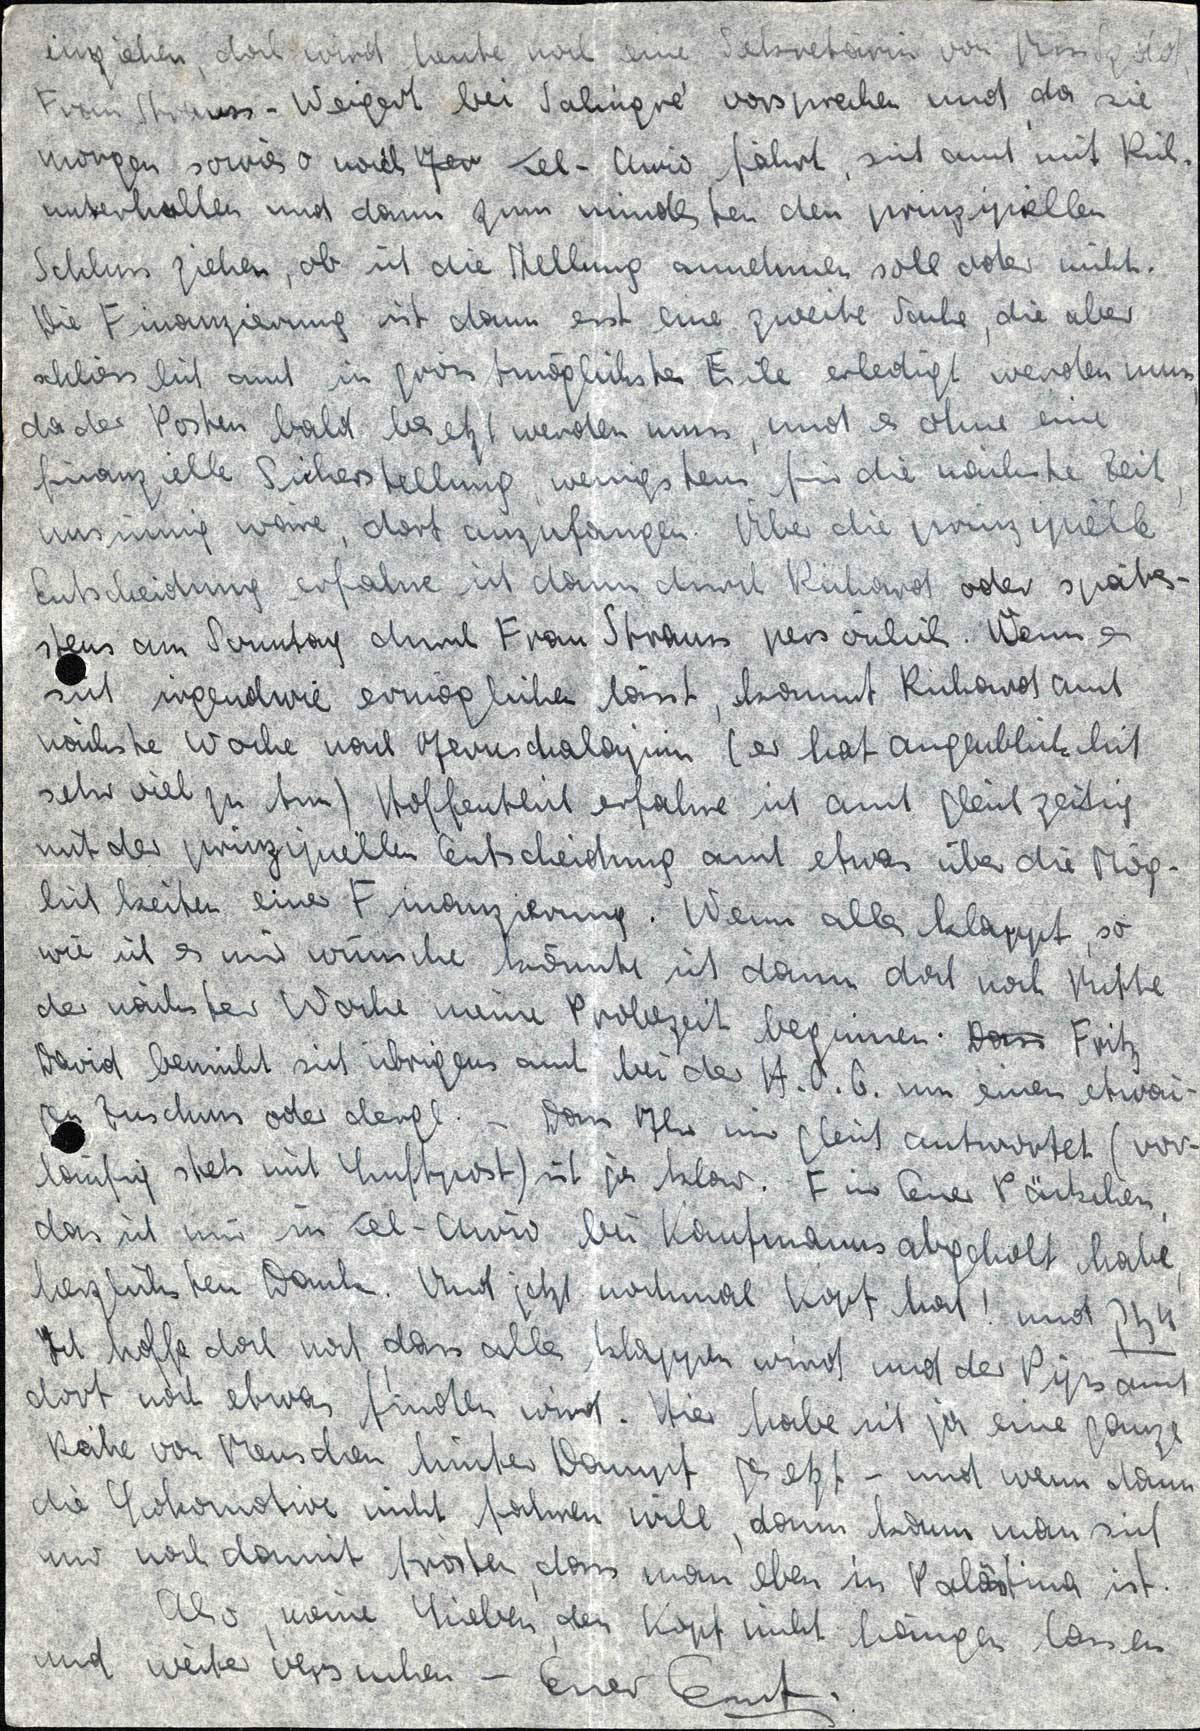 einziehen, doch wird heute noch eine Sekretärin von
Frau Strauss-Weigert bei Salingré vorsprechen und, da sie
morgen sowieso nach Jer Tel-Awiw fährt, sich auch mit Rich.
unterhalten und dann zum mindesten den prinzipiellen
Schluss ziehen, ob ich die Stellung annehmen soll oder nicht.
Die Finanzierung ist dann erst eine zweite Sache, die aber
schliesslich auch in grösstmöglichster Eile erledigt werden muss,
da der Posten bald besetzt werden muss, und es ohne eine
finanzielle Sicherstellung, wenigstens für die nächste Zeit,
unsinnig wäre, dort anzufangen. Über die prinzipielle
Entscheidung erfahre ich dann durch Richard oder späte-
stens am Sonntag durch Frau Strauss persönlich. Wenn es
sich irgendwie ermöglichen lässt, kommt Richard auch
nächste Woche nach Jeruschalajim (er hat augenblicklich
sehr viel zu tun) Hoffentlich erfahre ich auch gleichzeitig
mit der prinzipiellen Entscheidung auch etwas über die Mög-
lichkeiten einer Finanzierung. Wenn alles klappt, so
wie ich es mir wünsche könnte ich dann doch noch Mitte
der nächsten Woche meine Probezeit beginnen. Dass Fritz
David bemüht sich übrigens auch bei der H.O.G. um einen etwai-
gen Zuschuss oder dergl. – Dass Ihr mir gleich antwortet (vor-
läufig stets mit Luftpost) ist ja klar. Für Euer Päckchen,
das ich mir in Tel-Awiw bei Kaufmanns abgeholt habe,
herzlichsten Dank. Und jetzt nochmal Kopf hoch! und חזק
Ich hoffe doch noch, dass alles klappen wird und der Pips auch
dort noch etwas finden wird. Hier habe ich ja eine ganze
Reihe von Menschen hinter Dampf gesetzt – und wenn dann
die Lokomotive nicht fahren will, dann kann man sich
nur noch damit trösten, dass man eben in Palästina ist.
Also, meine Lieben, den Kopf nicht hängen lassen
und weiter versuchen – Euer Ernst.